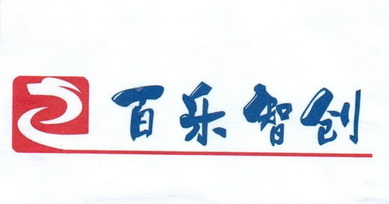 百乐智创